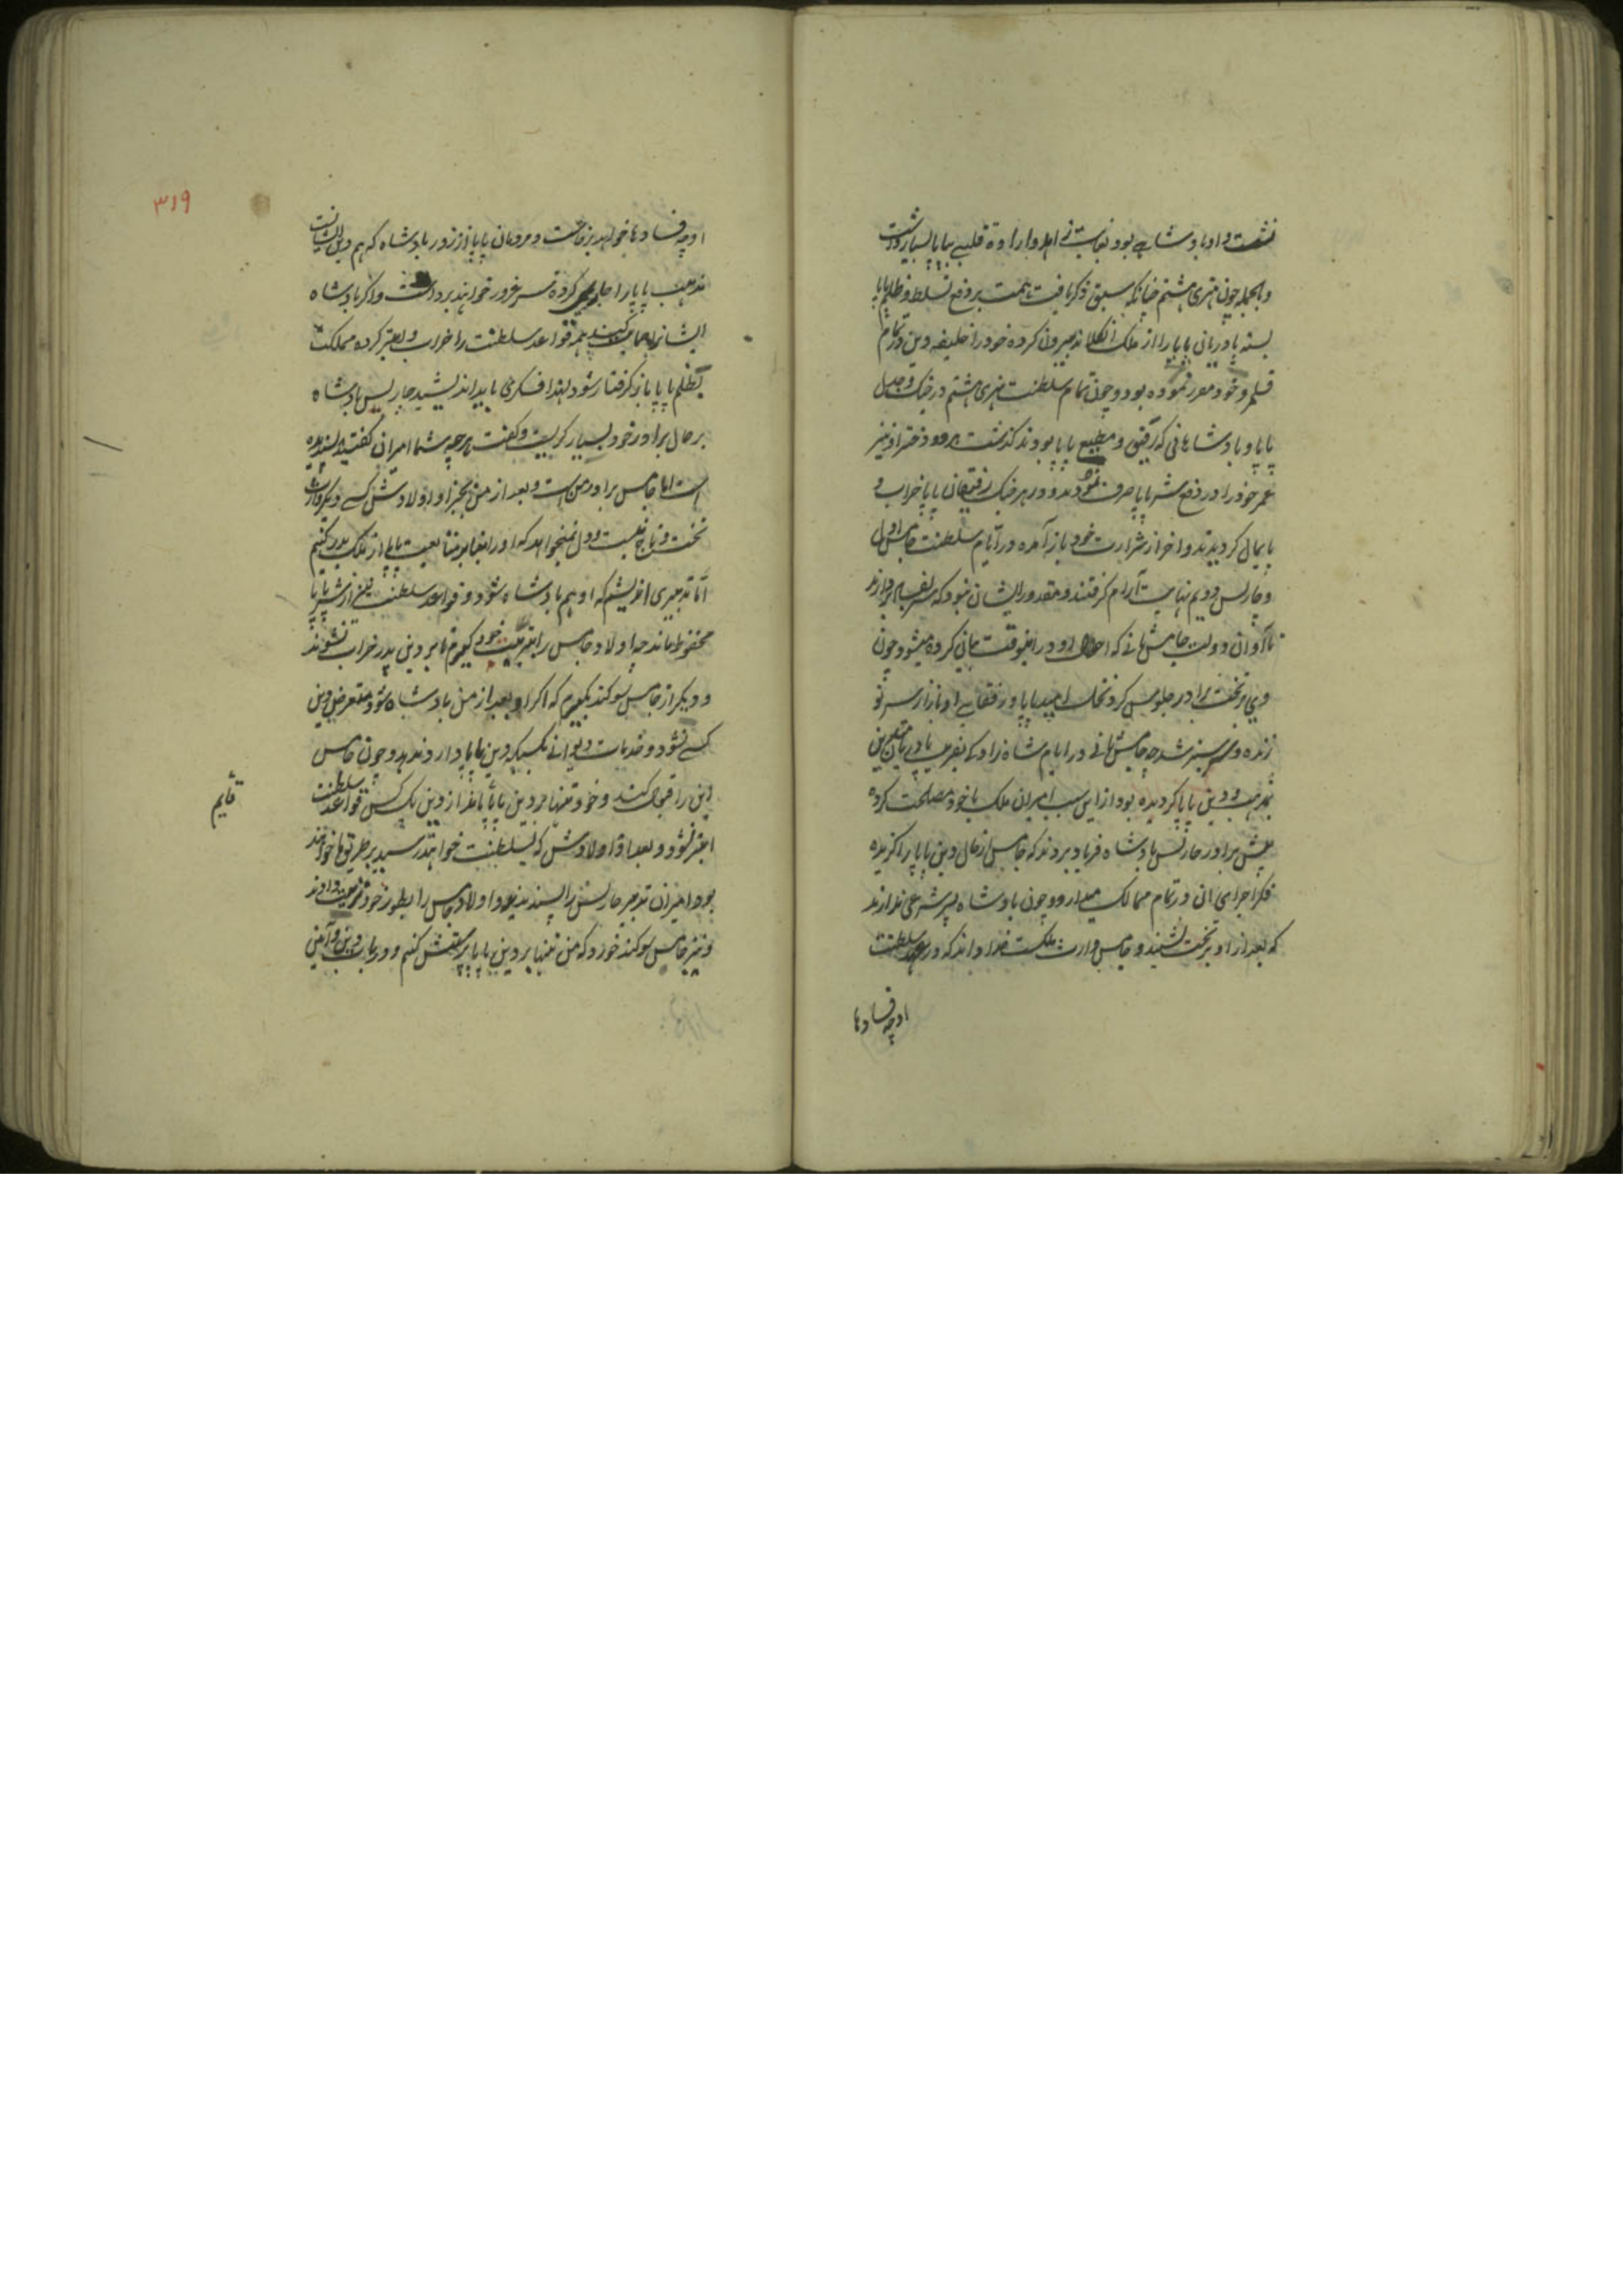 نشست و او بادشاهی بود بغایت زاهد و ارادهٔ قلبی بپاپا بسیار داشت
و بالجمله چون هنری هشتم چنانکه سبق ذکر یافت همت بر دفع تسلط و ظلم پاپا
بسته پادریانی پاپا را از ملک انگلاند بیرون کرده خود را خلیفه دین در تمام
قلمرو خود مقرر نموده بود و چون تمام سلطنت هنری هشتم در جنگ و جدل
پاپا و بادشاهانی که رفیق و مطیع پاپا بودند گذشت هر دو دختر او نیز
عمر خود را در دفع شر پاپا صرف نمودند و در هر جنگ رفیقان پاپا خراب و
پایمال گردیدند و آخر از شرارت خود باز آمده در ایام سلطنت جمس اول
و چارلس دوم نهایت آرام گرفتند و مقدور ایشان نبود که سر بفساد بردارند
تا اوان دولت جامس ثانی که احوال او در اینوقت بیان کرده میشود چون
وی بر تخت برادر جلوس کرد نخل امید پاپا و رفقای او باز از سر نو
زنده و سرسبز شد چه جامس ثانی در ایام شاهزادگی بفریب پادریان متعلق دین
بمذهب و دین پاپا گرویده بود از این سبب امیران ملک با خود مصلحت کرده
پیش برادر چارلس بادشاه فریاد بردند که جامس از حال دین پاپا را گزیده
فکر اجرای آن در تمام ممالک میدارد و چون بادشاه پسر شرعی ندارند
که بعد از او بر تخت نشیند و جامس وارث ملکست خدا داند که در عهد سلطنت
او چه فسادها
۳۱۹
او چه فسادها خواهد برخاست و مردمان پاپا از زور بادشاه که هم دین ایشانست
مذهب پاپا را جاری کرده سر غرور خواهند برداشت و اگر بادشاه
ایشانرا حمایت کند همه قواعد سلطنت را خراب و ابتر کرده مملکت
بظلم پاپا باز گرفتار شود لهذا فکری باید اندیشید چارلس بادشاه
بر حال برادر خود بسیار گریست و گفت هر چه شما امیران گفتید پسندیده
است اما جامس برادر من است و بعد از من بجز او و اولادش کسی دیگر وارث
تخت و تاج نیست و دل نمیخواهد که او را بنا بر متابعت پاپا از ملک بدر کنیم
اما تدبیری اندیشم که او هم بادشاه شود و قواعد سلطنت نیز از شر پاپا
محفوظ ماند چه اولاد جامس را به تربیت خود گیرم تا بر دین پدر خراب نشوند
و دیگر از جامس سوگند بگیرم که اگر او بعد از من بادشاه شود متعرض دین
کسی نشود و خدمات دیوانی بکسیکه دین پاپا دارد ندهد و چون جامس
این را قبول کند و خود تنها بر دین پاپا ماند از دین یک کس قواعد سلطنت
ابتر نشود و بعد او اولادش که بسلطنت خواهند رسید بر طریق ما خواهند
بود امیران تدبیر چارلس را پسندیدند و اولاد جامس را بطور خود تربیت دادند
و نیز جامس سوگند خورد که من تنها بر دین پاپا پرستش کنم و در باب دین و آئین
قایم